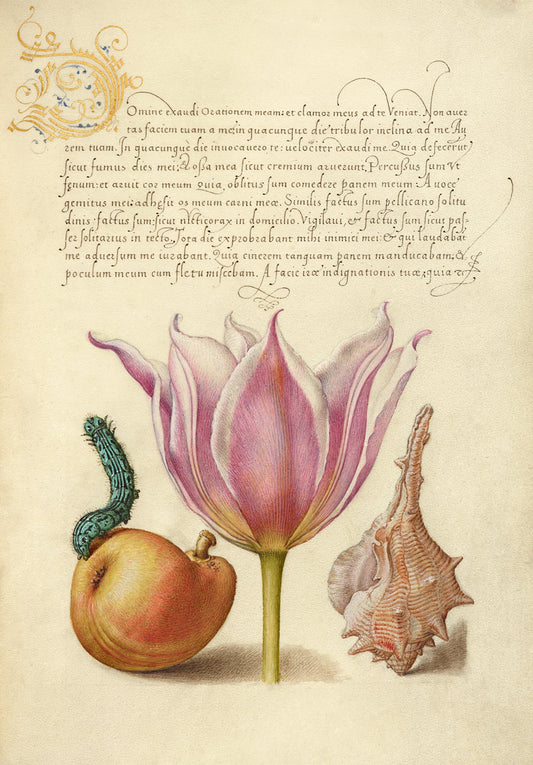 Domine exaudi Orationem meam: et clamor meus ad te Veniat. Non auer
tas faciem tuam a me: in quacunque die tribulor inclina ad me Au
rem tuam. In quacunque die inuocauero te: uelociter exaudi me. Quia defecerūt
sicut fumus dies mei: & ossa mea sicut cremium aruerunt. Percussus sum Vt
fęnum: et aruit cor meum quia oblitus sum comedere panem meum. A uoce
gemitus mei: adhesit os meum carni meæ. Similis factus sum pellicano solitu
dinis: factus sum sicut nicticorax in domicilio. Vigilaui, & factus sum sicut pas,
ser solitarius in tecto. Tota die exprobrabant mihi inimici mei: & qui laudabāt
me aduersum me iurabant. Quia cinerem tanquam panem manducabam: &
poculum meum cum fletu miscebam. A facie iræ indignationis tuæ: quia